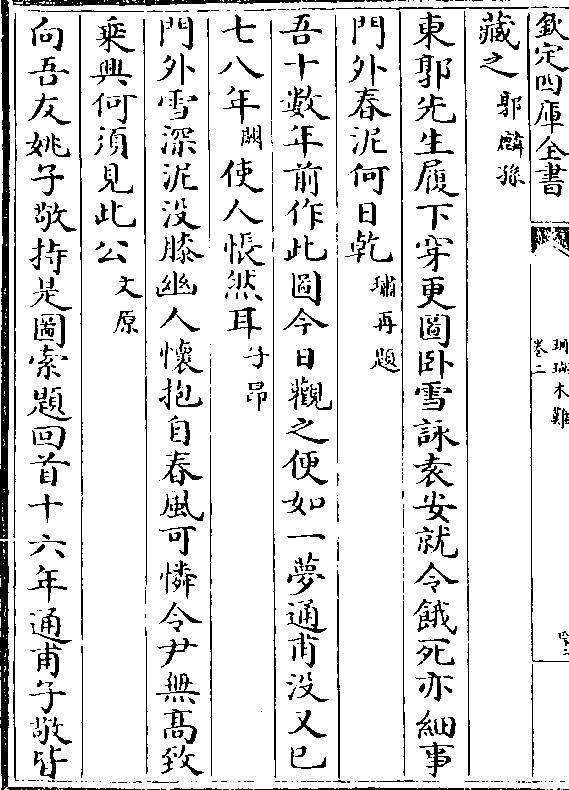 欽定四庫全書
珊瑚木難
卷二
藏之郭麟孫
東郭先生履下穿更圖卧雪詠袁安就令餓死亦細事
門外春泥何日乾璛再題
吾十數年前作此圖今日觀之便如一夢通甫没又已
七八年闕使人悵然耳子昂
門外雪深泥没膝幽人懷抱自春風可憐令尹無髙致
乘興何須見此公文原
向吾友姚子敬持是圖索題回首十六年通甫子敬皆